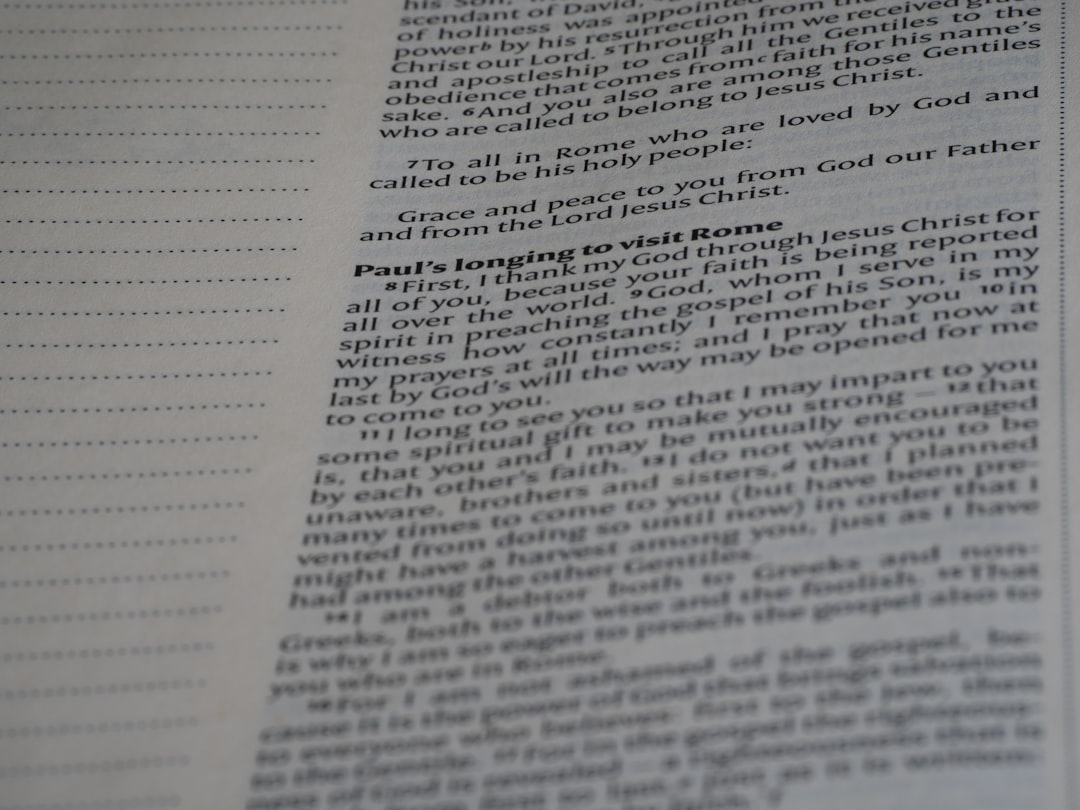 his Son,
scendant of David,
of holiness was appointed
powerᵇ by his resurrection from the
Christ our Lord. ⁵Through him we received grace
and apostleship to call all the Gentiles to the
obedience that comes fromᶜ faith for his name's
sake. ⁶And you also are among those Gentiles
who are called to belong to Jesus Christ.
⁷To all in Rome who are loved by God and
called to be his holy people:
Grace and peace to you from God our Father
and from the Lord Jesus Christ.
Paul's longing to visit Rome
⁸First, I thank my God through Jesus Christ for
all of you, because your faith is being reported
all over the world. ⁹God, whom I serve in my
spirit in preaching the gospel of his Son, is my
witness how constantly I remember you ¹⁰in
my prayers at all times; and I pray that now at
last by God's will the way may be opened for me
to come to you.
¹¹I long to see you so that I may impart to you
some spiritual gift to make you strong – ¹²that
is, that you and I may be mutually encouraged
by each other's faith. ¹³I do not want you to be
unaware, brothers and sisters,ᵈ that I planned
many times to come to you (but have been pre-
vented from doing so until now) in order that I
might have a harvest among you, just as I have
had among the other Gentiles.
¹⁴I am a debtor both to Greeks and non-
Greeks, both to the wise and the foolish. ¹⁵That
is why I am so eager to preach the gospel also to
you who are in Rome.
¹⁶For I am not ashamed of the gospel, be-
cause it is the power of God that brings salvation
to everyone who believes: first to the Jew, then
to the Gentile. ¹⁷For in the gospel the righteous-
ness of God is revealed – a righteousness that is